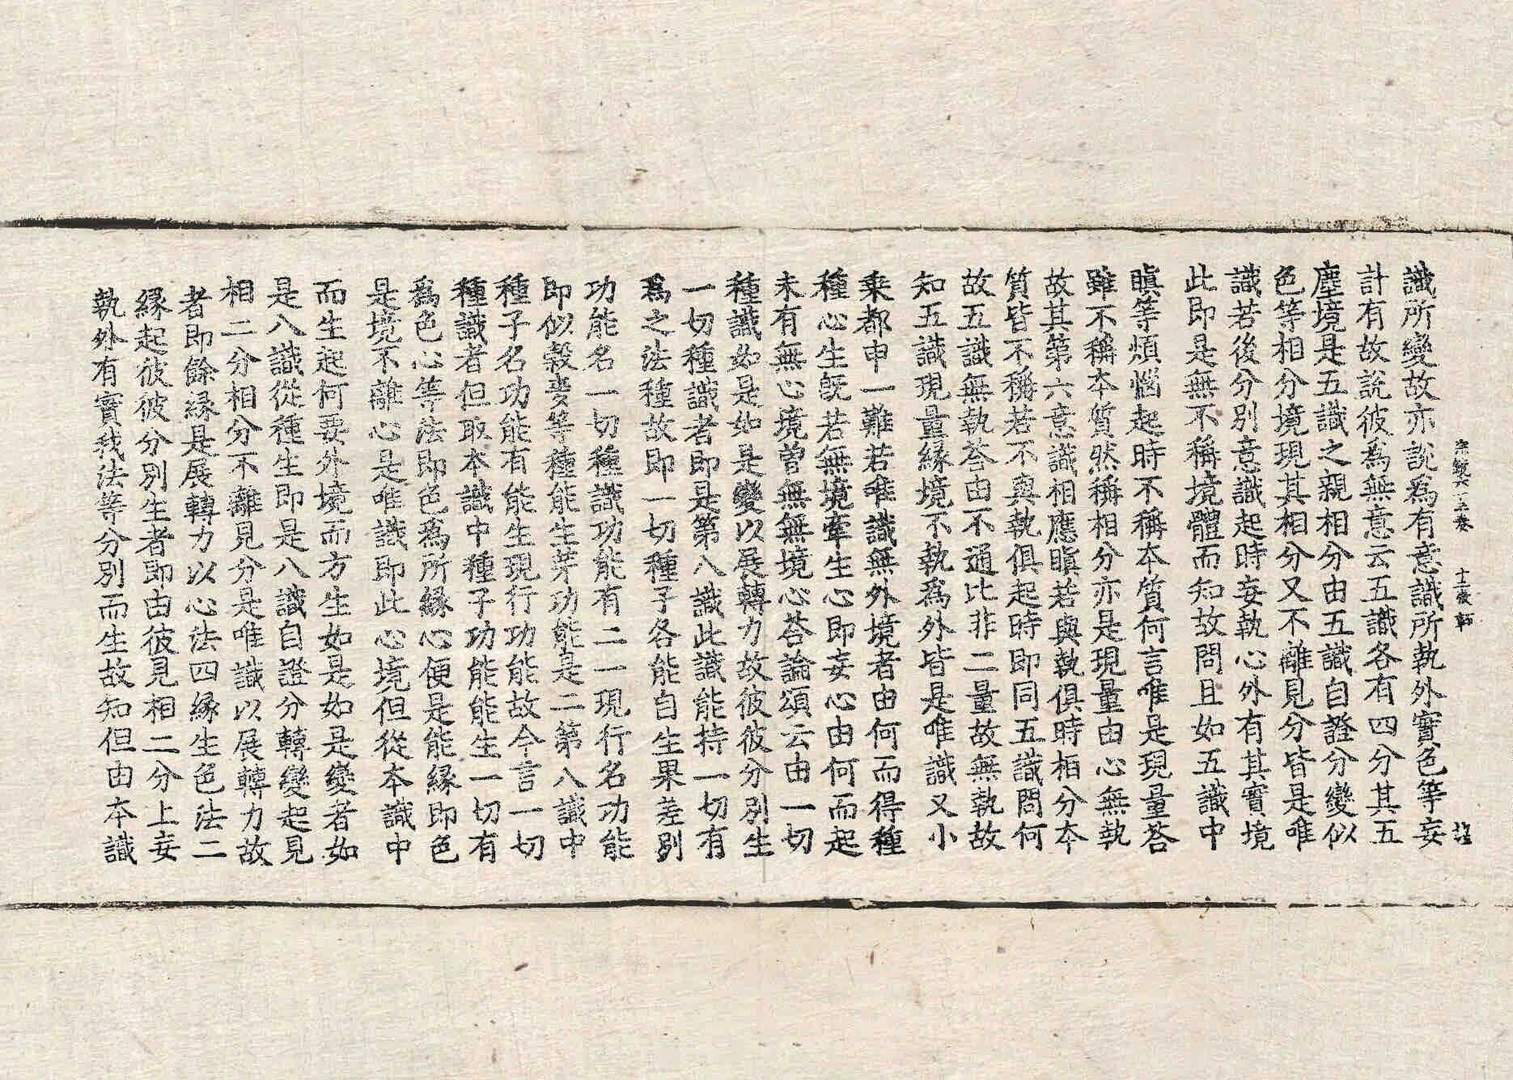 宗鏡六十二卷 十二張 軒
識所變故亦說爲有意識所執外實色等妄
計有故說彼爲無意云五識各有四分其五
塵境是五識之親相分由五識自證分變似
色等相分境現其相分又不離見分皆是唯
識若後分別意識起時妄執心外有其實境
此即是無不稱境體而知故問且如五識中
瞋等煩惱起時不稱本質何言唯是現量答
雖不稱本質然稱相分亦是現量由心無執
故其第六意識相應瞋若與執俱時相分本
質皆不稱若不與執俱起時即同五識問何
故五識無執答由不通比非二量故無執故
知五識現量緣境不執爲外皆是唯識又小
乘都申一難若唯識無外境者由何而得種
種心生旣若無境牽生心即妄心由何而起
未有無心境曾無無境心答論頌云由一切
種識如是如是變以展轉力故彼彼分別生
一切種識者即是第八識此識能持一切有
爲之法種故即一切種子各能自生果差別
功能名一切種識功能有二一現行名功能
即似穀麥等種能生芽功能是二第八識中
種子名功能有能生現行功能故今言一切
種識者但取本識中種子功能能生一切有
爲色心等法即色爲所緣心便是能緣即色
是境不離心是唯識即此心境但從本識中
而生起何要外境而方生如是如是變者如
是八識從種生即是八識自證分轉變起見
相二分相分不離見分是唯識以展轉力故
者即餘緣是展轉力以心法四緣生色法二
緣起彼彼分別生者即由彼見相二分上妄
執外有實我法等分別而生故知但由本識